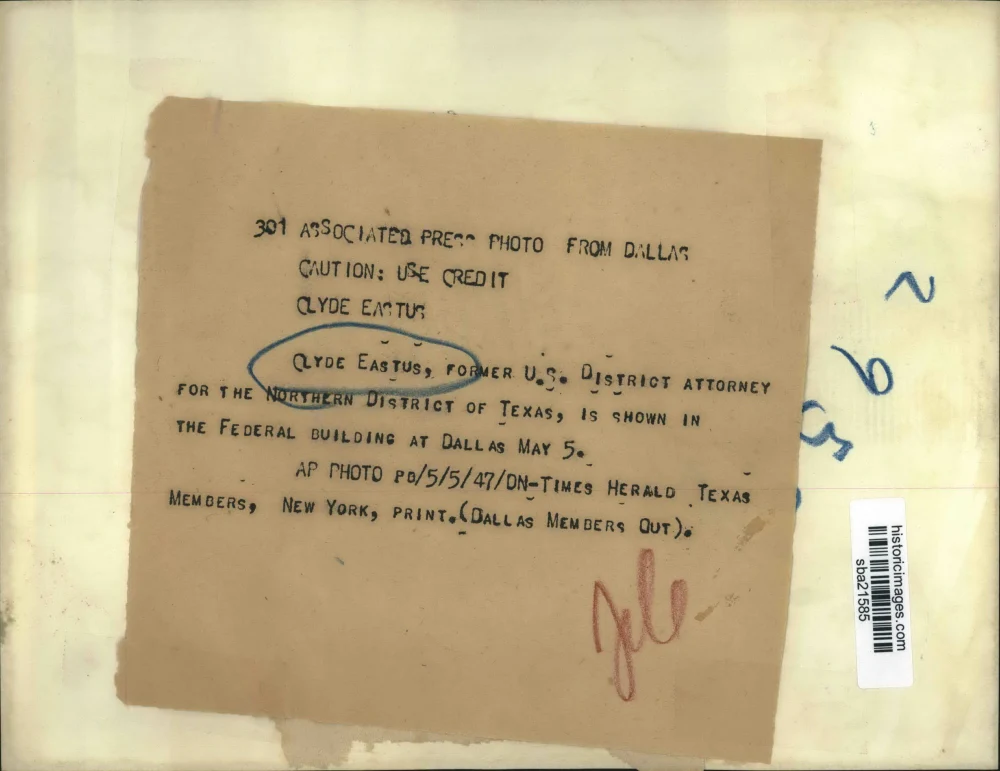 301 ASSOCIATED PRESS PHOTO FROM DALLAS
CAUTION: USE CREDIT
CLYDE EASTUS
CLYDE EASTUS, FORMER U.S. DISTRICT ATTORNEY
FOR THE NORTHERN DISTRICT OF TEXAS, IS SHOWN IN
THE FEDERAL BUILDING AT DALLAS MAY 5.
AP PHOTO PD/5/5/47/DN-TIMES HERALD TEXAS
MEMBERS, NEW YORK, PRINT.(DALLAS MEMBERS OUT).
historicimages.com
sba21585